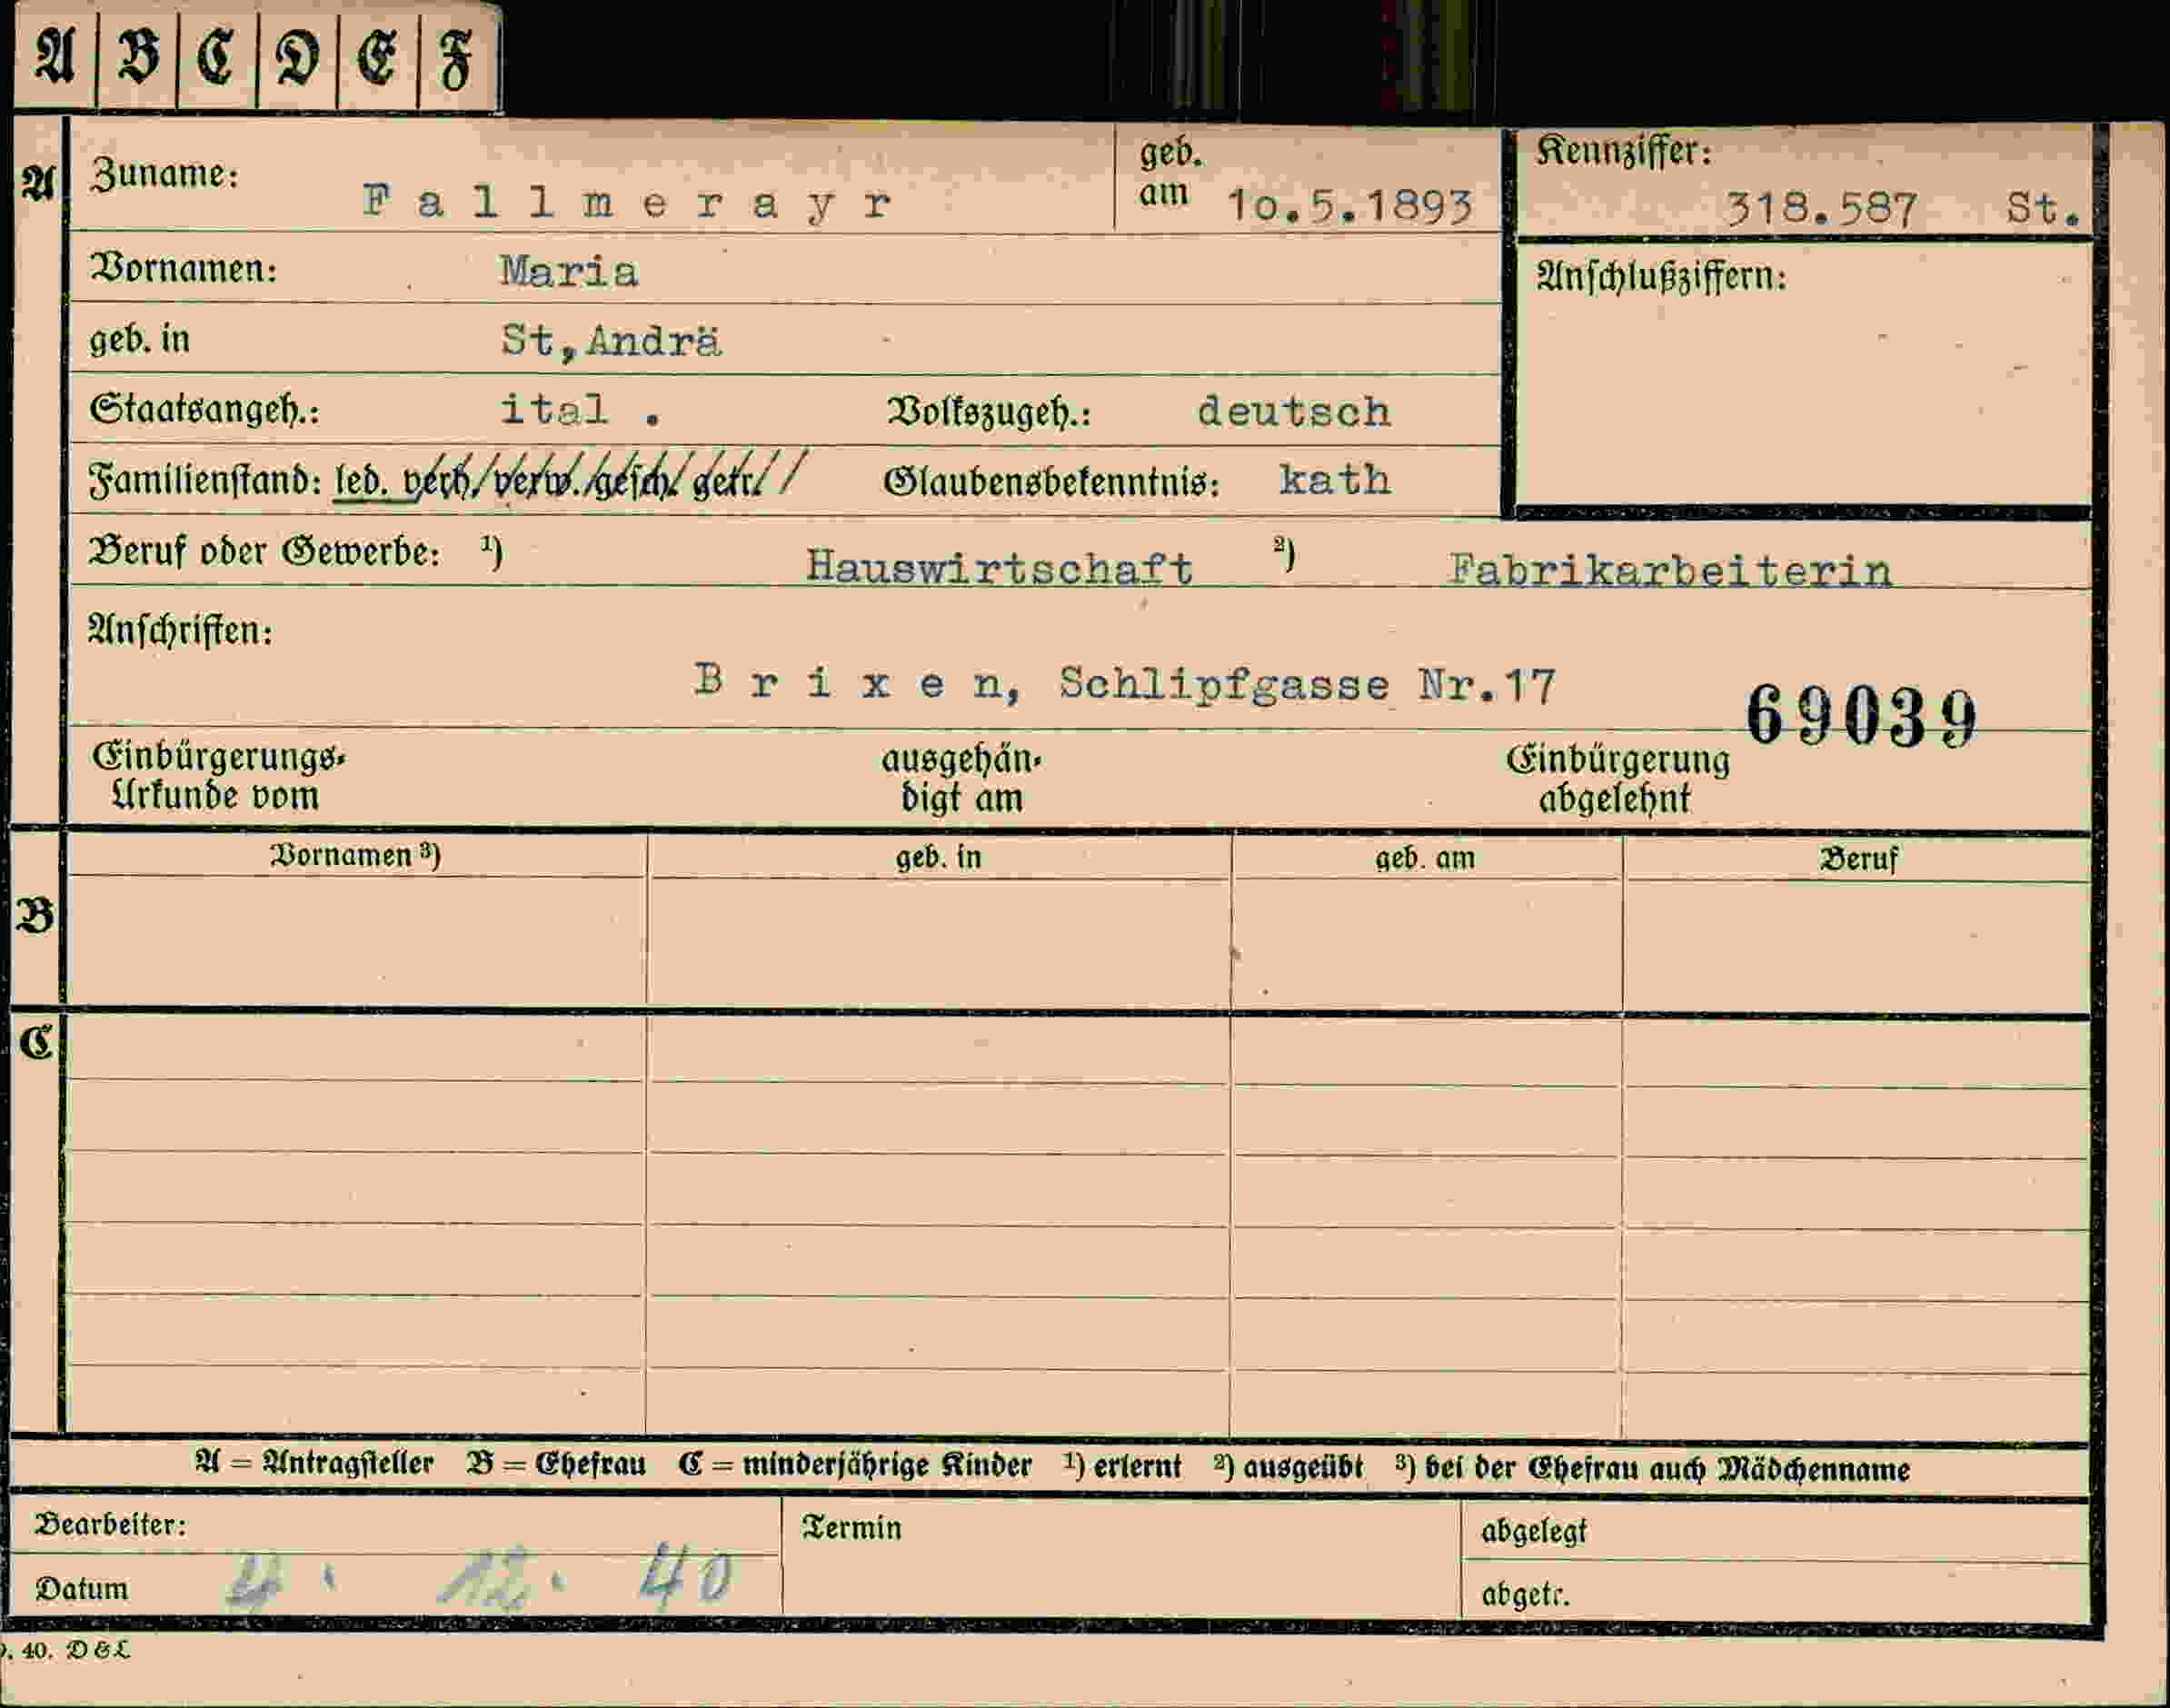 A B C D E F
A Zuname: Fallmerayr geb. am 1o.5.1893 Kennziffer: 318.587 St.
Vornamen: Maria Anschlußziffern:
geb. in St,Andrä
Staatsangeh.: ital . Volkszugeh.: deutsch
Familienstand: led. verh./verw./gesch./getr./ Glaubensbekenntnis: kath
Beruf oder Gewerbe: ¹) Hauswirtschaft ²) Fabrikarbeiterin
Anschriften:
Brixen, Schlipfgasse Nr.17
69039
Einbürgerungs-
Urkunde vom
ausgehän-
digt am
Einbürgerung
abgelehnt
Vornamen ³) geb. in geb. am Beruf
B
C
A = Antragsteller B = Ehefrau C = minderjährige Kinder ¹) erlernt ²) ausgeübt ³) bei der Ehefrau auch Mädchenname
Bearbeiter: Termin abgelegt
Datum 4. 12. 40 abgetr.
40. D & L